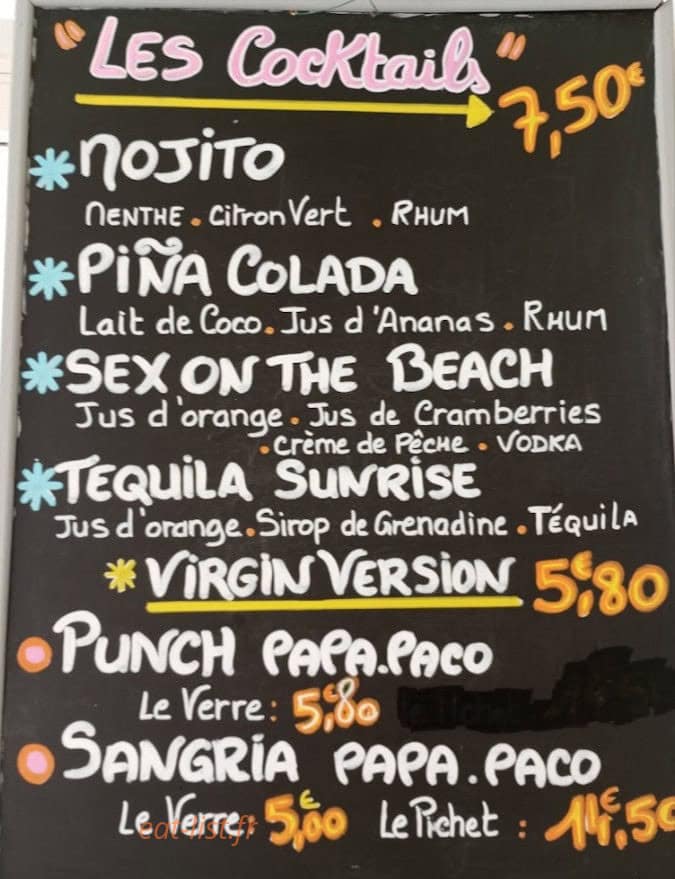 "LES Cocktails"
7,50€
* MOJITO
MENTHE . Citron Vert . RHUM
* PIÑA COLADA
Lait de Coco . Jus d'Ananas . RHUM
* SEX ON THE BEACH
Jus d'orange . Jus de Cramberries
. Crème de Pêche . VODKA
* TEQUILA SUNRISE
Jus d'orange . Sirop de Grenadine . TéquilA
* VIRGIN VERSION 5,€80
PUNCH PAPA.PACO
Le Verre : 5,€80
SANGRIA PAPA.PACO
Le Verre : 5,€00 Le Pichet : 14,€50
eat-list.fr